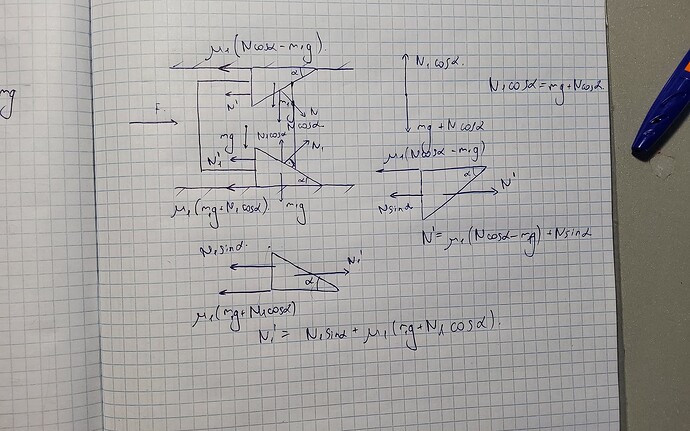 μ₁(Ncosα − m₁g).
α
N'
m₁g
N
Ncosα
F.
mg
N₁cosα
N₁
N₁'
α
m₁g
μ₁(m₁g + N₁cosα)
N₁cosα.
mg + Ncosα
N₁cosα = mg + Ncosα.
μ₁(Ncosα − m₁g)
α
N'
Nsinα
N' = μ₁(Ncosα − m₁g) + Nsinα
N₁sinα.
N₁'
α
μ₁(m₁g + N₁cosα)
N₁' = N₁sinα + μ₁(m₁g + N₁cosα).
mg